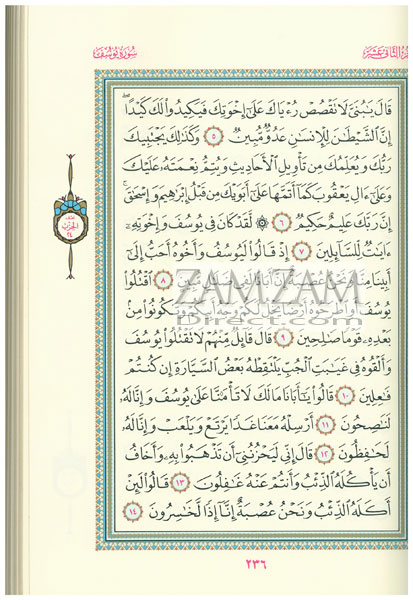 الجُزْءُ الثَّانِي عَشَرَ
سُورَةُ يُوسُفَ
قَالَ يَٰبُنَىَّ لَا تَقْصُصْ رُءْيَاكَ عَلَىٰٓ إِخْوَتِكَ فَيَكِيدُوا۟ لَكَ كَيْدًا ۖ
إِنَّ ٱلشَّيْطَٰنَ لِلْإِنسَٰنِ عَدُوٌّ مُّبِينٌ ٥ وَكَذَٰلِكَ يَجْتَبِيكَ
رَبُّكَ وَيُعَلِّمُكَ مِن تَأْوِيلِ ٱلْأَحَادِيثِ وَيُتِمُّ نِعْمَتَهُۥ عَلَيْكَ
وَعَلَىٰٓ ءَالِ يَعْقُوبَ كَمَآ أَتَمَّهَا عَلَىٰٓ أَبَوَيْكَ مِن قَبْلُ إِبْرَٰهِيمَ وَإِسْحَٰقَ ۚ
إِنَّ رَبَّكَ عَلِيمٌ حَكِيمٌ ٦ ۞ لَّقَدْ كَانَ فِى يُوسُفَ وَإِخْوَتِهِۦٓ
ءَايَٰتٌ لِّلسَّآئِلِينَ ٧ إِذْ قَالُوا۟ لَيُوسُفُ وَأَخُوهُ أَحَبُّ إِلَىٰٓ
أَبِينَا مِنَّا وَنَحْنُ عُصْبَةٌ إِنَّ أَبَانَا لَفِى ٨ ٱقْتُلُوا۟
يُوسُفَ أَوِ ٱطْرَحُوهُ أَرْضًا يَخْلُ لَكُمْ وَجْهُ أَبِيكُمْ وَتَكُونُوا۟ مِنۢ
بَعْدِهِۦ قَوْمًا صَٰلِحِينَ ٩ قَالَ قَآئِلٌ مِّنْهُمْ لَا تَقْتُلُوا۟ يُوسُفَ
وَأَلْقُوهُ فِى غَيَٰبَتِ ٱلْجُبِّ يَلْتَقِطْهُ بَعْضُ ٱلسَّيَّارَةِ إِن كُنتُمْ
فَٰعِلِينَ ١٠ قَالُوا۟ يَٰٓأَبَانَا مَا لَكَ لَا تَأْمَ۫نَّا عَلَىٰ يُوسُفَ وَإِنَّا لَهُۥ
لَنَٰصِحُونَ ١١ أَرْسِلْهُ مَعَنَا غَدًا يَرْتَعْ وَيَلْعَبْ وَإِنَّا لَهُۥ
لَحَٰفِظُونَ ١٢ قَالَ إِنِّى لَيَحْزُنُنِىٓ أَن تَذْهَبُوا۟ بِهِۦ وَأَخَافُ
أَن يَأْكُلَهُ ٱلذِّئْبُ وَأَنتُمْ عَنْهُ غَٰفِلُونَ ١٣ قَالُوا۟ لَئِنْ
أَكَلَهُ ٱلذِّئْبُ وَنَحْنُ عُصْبَةٌ إِنَّآ إِذًا لَّخَٰسِرُونَ ١٤
الحزب
٢٤
ZAMZAM
٢٣٦